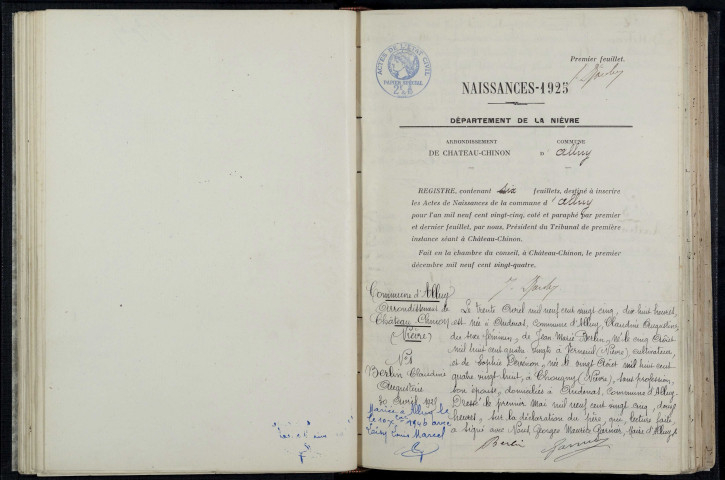 Premier feuillet.
ACTES DE L'ÉTAT CIVIL
PAPIER SPÉCIAL
NAISSANCES-1925
DÉPARTEMENT DE LA NIÈVRE
ARRONDISSEMENT
DE CHATEAU-CHINON
COMMUNE
D' Alluy
REGISTRE, contenant six feuillets, destiné à inscrire
les Actes de Naissances de la commune d' Alluy
pour l'an mil neuf cent vingt-cinq, coté et paraphé par premier
et dernier feuillet, par nous, Président du Tribunal de première
instance séant à Château-Chinon.
Fait en la chambre du conseil, à Château-Chinon, le premier
décembre mil neuf cent vingt-quatre.
Commune d'Alluy
Arrondissement de
Château Chinon
(Nièvre)
N° 1
Berlin Claudine
Augustine
30 Avril 1925
Mariée à Alluy le
1946 avec
Louis Marcel
Le trente Avril mil neuf cent vingt cinq, dix huit heures,
est née à Audenas, commune d'Alluy, Claudine Augustine,
du sexe féminin, de Jean Marie Berlin, né le cinq Août
mil huit cent quatre vingts à Verneuil (Nièvre) cultivateur,
et de Sophie née le vingt Août mil huit cent
quatre vingt huit, à Chougny (Nièvre), sans profession,
son épouse, domiciliés à Audenas, commune d'Alluy.
Dressé le premier Mai mil neuf cent vingt cinq, douze
heures, sur la déclaration du père qui, lecture faite,
a signé avec Nous, Georges Maurice Garnier, Maire d'Alluy.
Berlin Garnier